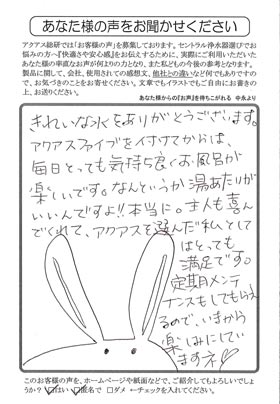 あなた様の声をお聞かせください
アクアス総研では「お客様の声」を募集しております。セントラル浄水器選びでお
悩みの方へ『快適さや安心感』をお伝えするために、実際にご利用いただいた
あなた様の率直なお声が何よりの力となり、また私どもの今後の参考となります。
製品に関して、会社、使用されての感想文、他社との違いなど何でもありますの
で、お気づきのことをお書きください。文章でもイラストでもご自由にお書きの上
、お送りください。
あなた様からの『お声』を待ちこがれる 中永より
きれいな水をありがとうございます。
アクアスファイブを付けてからは、
毎日とっても気持ち良くお風呂が
楽しいです。なんというか湯あたりが
いいんですよ!!本当に。主人も喜ん
でくれて、アクアスを選んだ私として
はとっても
満足です。
定期メンテ
ナンスもしてもらえ
るので、いまから
楽しみにしてい
ますネ♡
このお客様の声を、ホームページや紙面などで、ご紹介してもよろしいでしょ
うか? □はい □匿名で □ダメ ←チェックを入れてください。